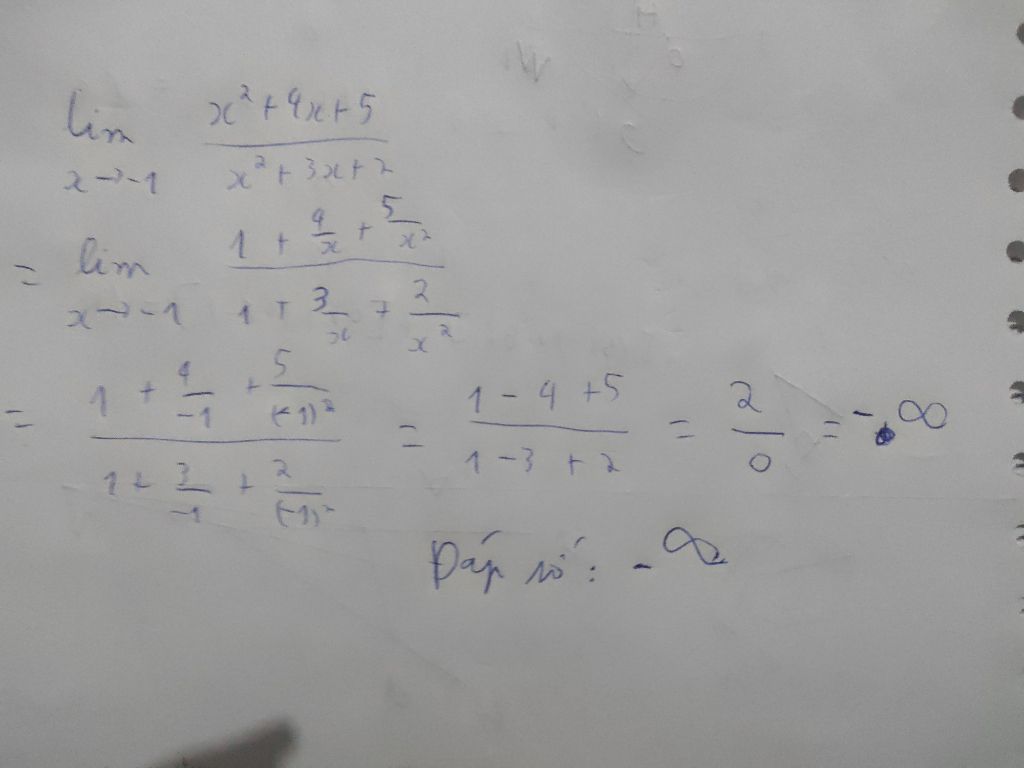 lim x²+4x+5 / x²+3x+2
x→-1
= lim 1 + 4/x + 5/x² / 1 + 3/x + 2/x²
x→-1
= 1 + 4/-1 + 5/(-1)² / 1 + 3/-1 + 2/(-1)² = 1 - 4 + 5 / 1 - 3 + 2 = 2/0 = -∞
Đáp số: -∞